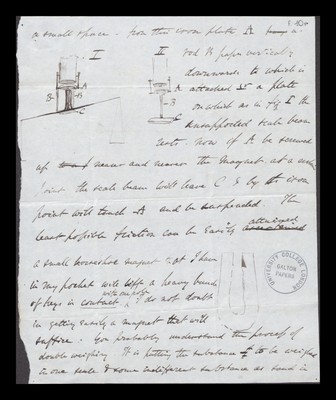 a small space. from the iron plate A a
I
II
rod B passes vertically
downwards to which is
attached a plate
on which as in fig I the
unsupported scale beam
rests. now if A be screwed
up nearer and nearer the magnet at a certain
point the scale beam will leave C & by the iron
point will touch A and be suspended. The
least possible friction can be easily attained
a small horseshoe magnet that I have
in my pocket will lift a heavy bunch
of keys in contact with one pole, I do not doubt
in getting easily a magnet that will
suffice. You probably understand the process of
double weighing. It is putting the substance to be weighed
in one scale & some indifferent substance as sand in
A
B
A
B
C
UNIVERSITY COLLEGE LONDON
GALTON PAPERS